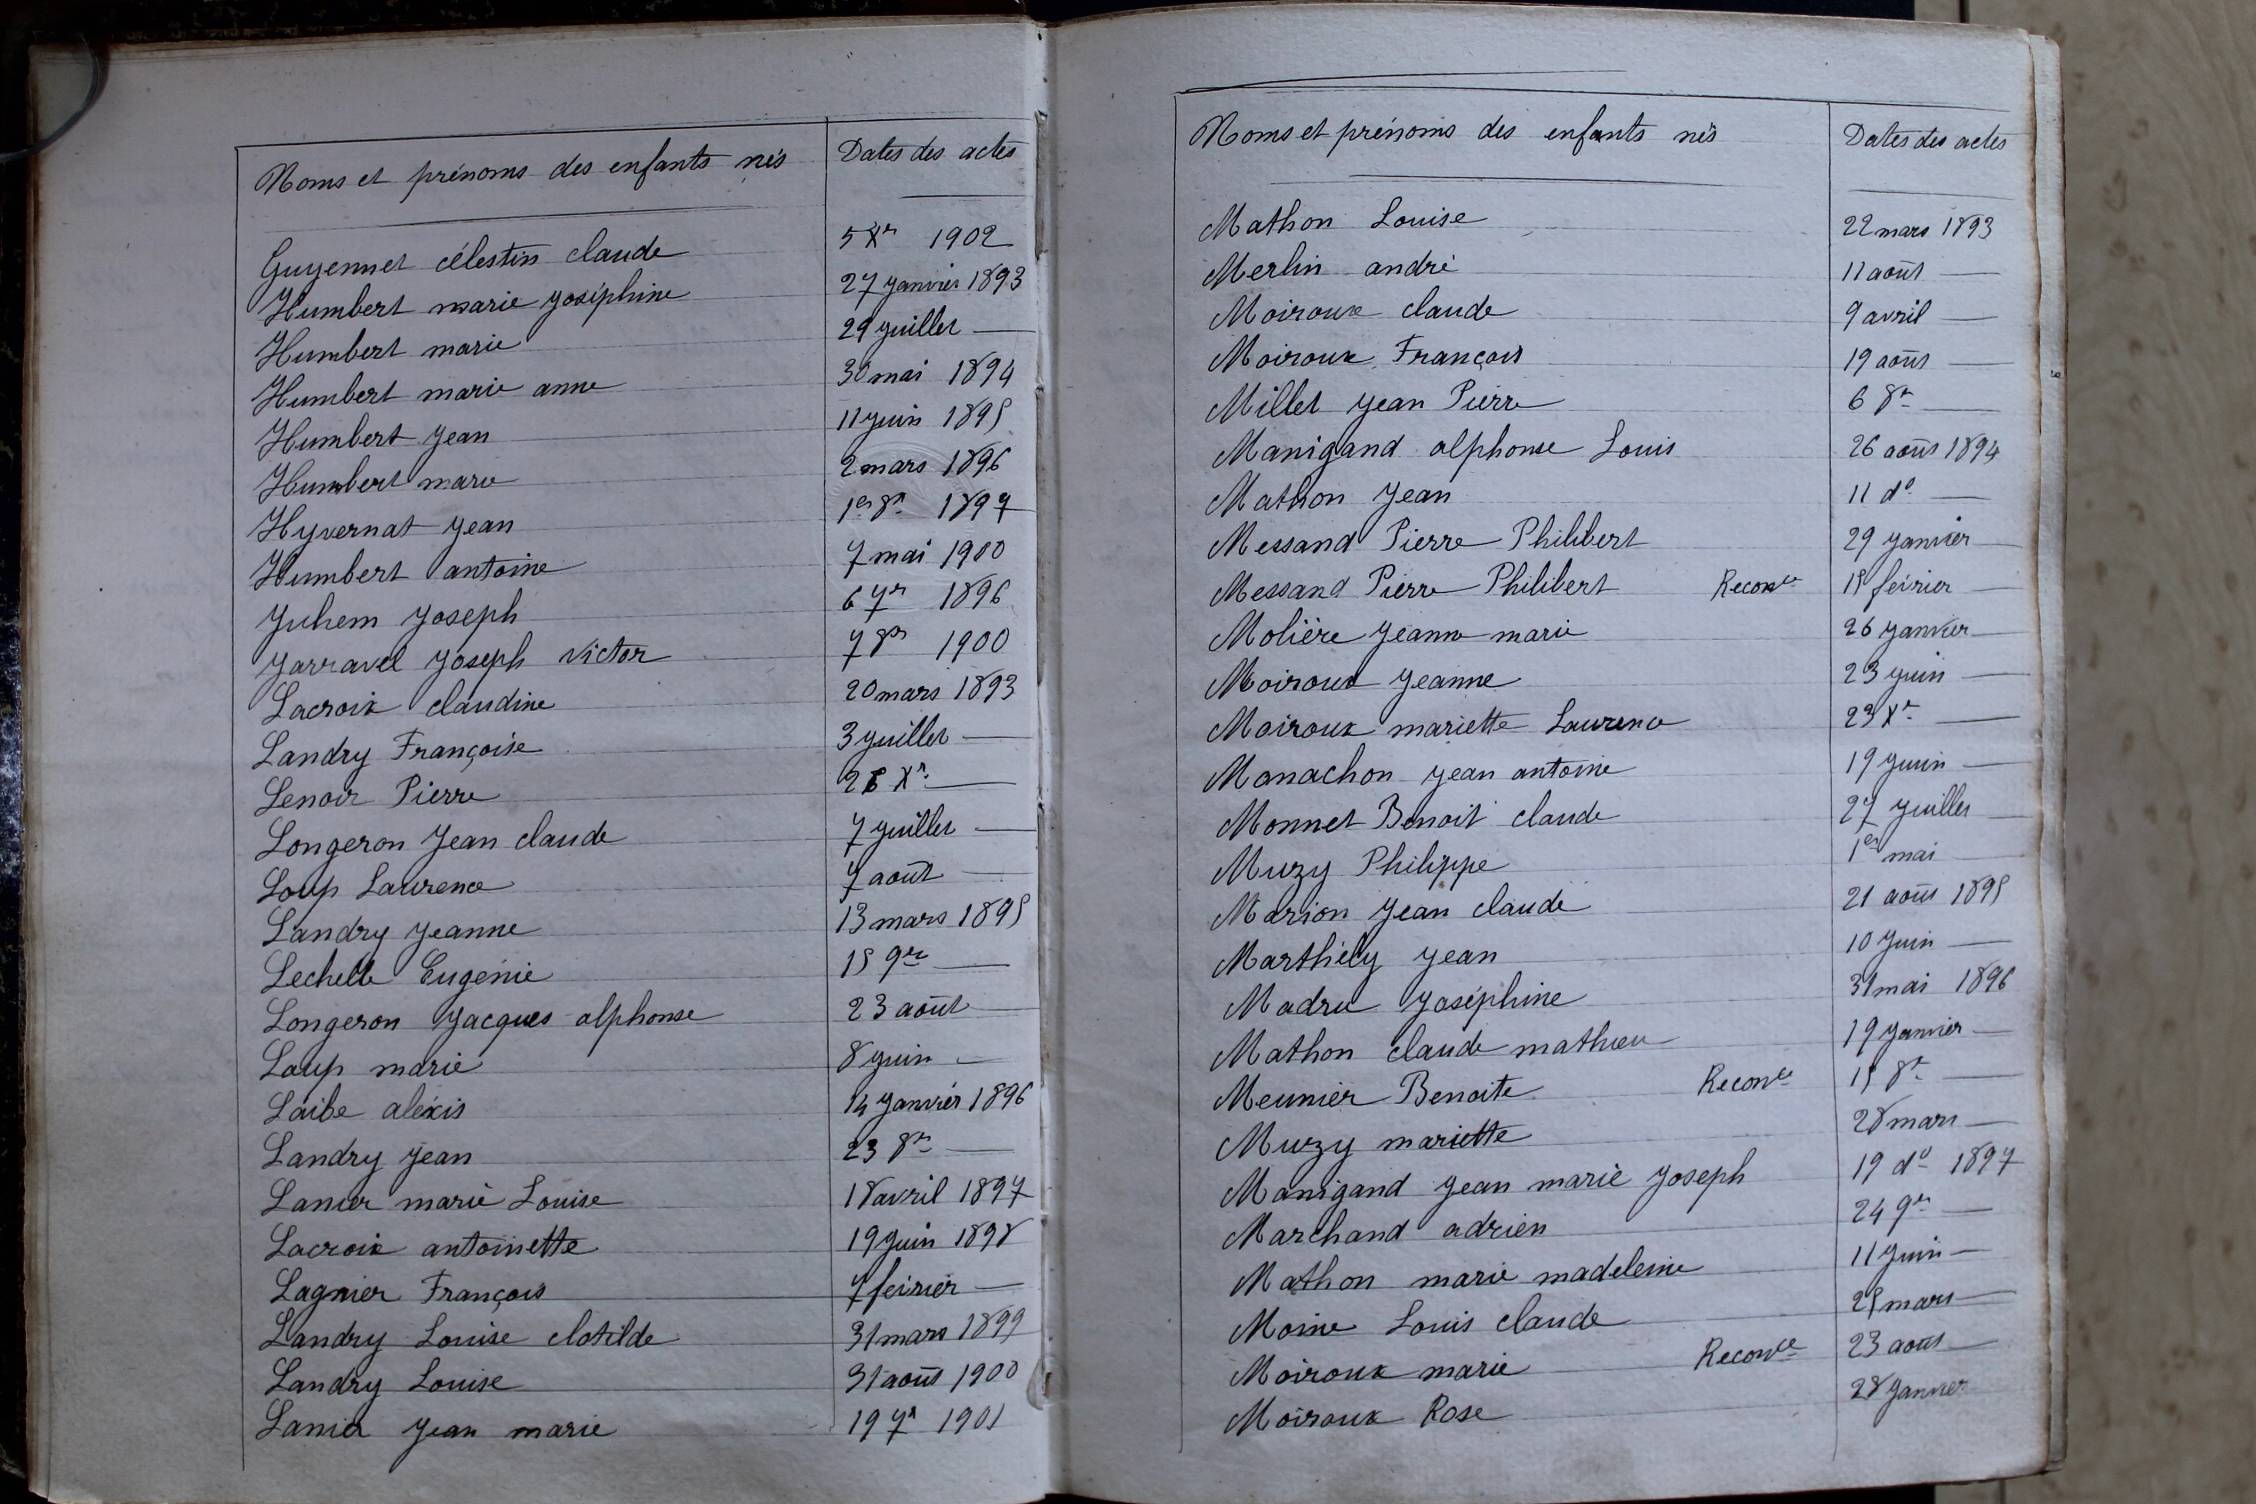 Noms et prénoms des enfants nés Dates des actes
Guyennet célestin claude 5 Xr 1902
Humbert marie joséphine 27 janvier 1893
Humbert marie 29 juillet —
Humbert marie anne 30 mai 1894
Humbert jean 11 juin 1895
Humbert marie 2 mars 1896
Hyvernat jean 1er 8r 1897
Humbert antoine 7 mai 1900
Juhem joseph 6 7r 1896
Jarravel joseph victor 7 8r 1900
Lacroix claudine 20 mars 1893
Landry Françoise 3 juillet —
Lenoir Pierre Xr —
Longeron Jean claude 7 juillet —
Loup Laurence 7 août —
Landry jeanne 13 mars 1895
Lechelle Eugénie 15 9re —
Longeron jacques alphonse 23 août
Loup marie 8 juin —
Laibe aléxis 14 janvier 1896
Landry jean 23 8r —
Lanier marie Louise 18 avril 1897
Lacroix antoinette 19 juin 1898
Lagnier François 7 février —
Landry Louise clotilde 31 mars 1899
Landry Louise 31 août 1900
Lanier jean marie 19 7r 1901
Noms et prénoms des enfants nés Dates des actes
Mathon Louise 22 mars 1893
Merlin andré 11 août —
Moiroux claude 9 avril —
Moiroux François 19 août —
Millet jean Pierre 6 8r —
Manigand alphonse Louis 26 août 1894
Mathon Jean 11 do —
Messand Pierre Philibert 29 janvier —
Messand Pierre Philibert Reconce 15 février —
Molière jeanne marie 26 janvier —
Moiroux jeanne 23 juin —
Moiroux mariette Laurence 23 Xr —
Monachon jean antoine 19 juin —
Monnet Benoit claude 27 juillet
Muzy Philippe 1er mai
Marion jean claude 21 août 1895
Marthély jean 10 juin —
Madru joséphine 31 mai 1896
Mathon claude mathieu 19 janvier —
Meunier Benoite Reconce 15 8r —
Muzy mariette 28 mars —
Manigand jean marie joseph 19 do 1897
Marchand adrien 24 9re —
Mathon marie madeleine 11 juin —
Moine Louis claude 25 mars —
Moiroux marie Reconce 23 août —
Moiroux Rose 28 janvier